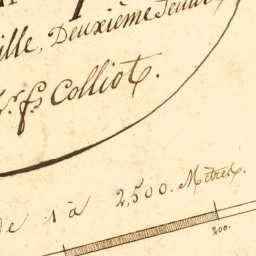 ille, Deuxième Feuille
fs Colliot.
de 1 à 2,500. Mètres.
200.